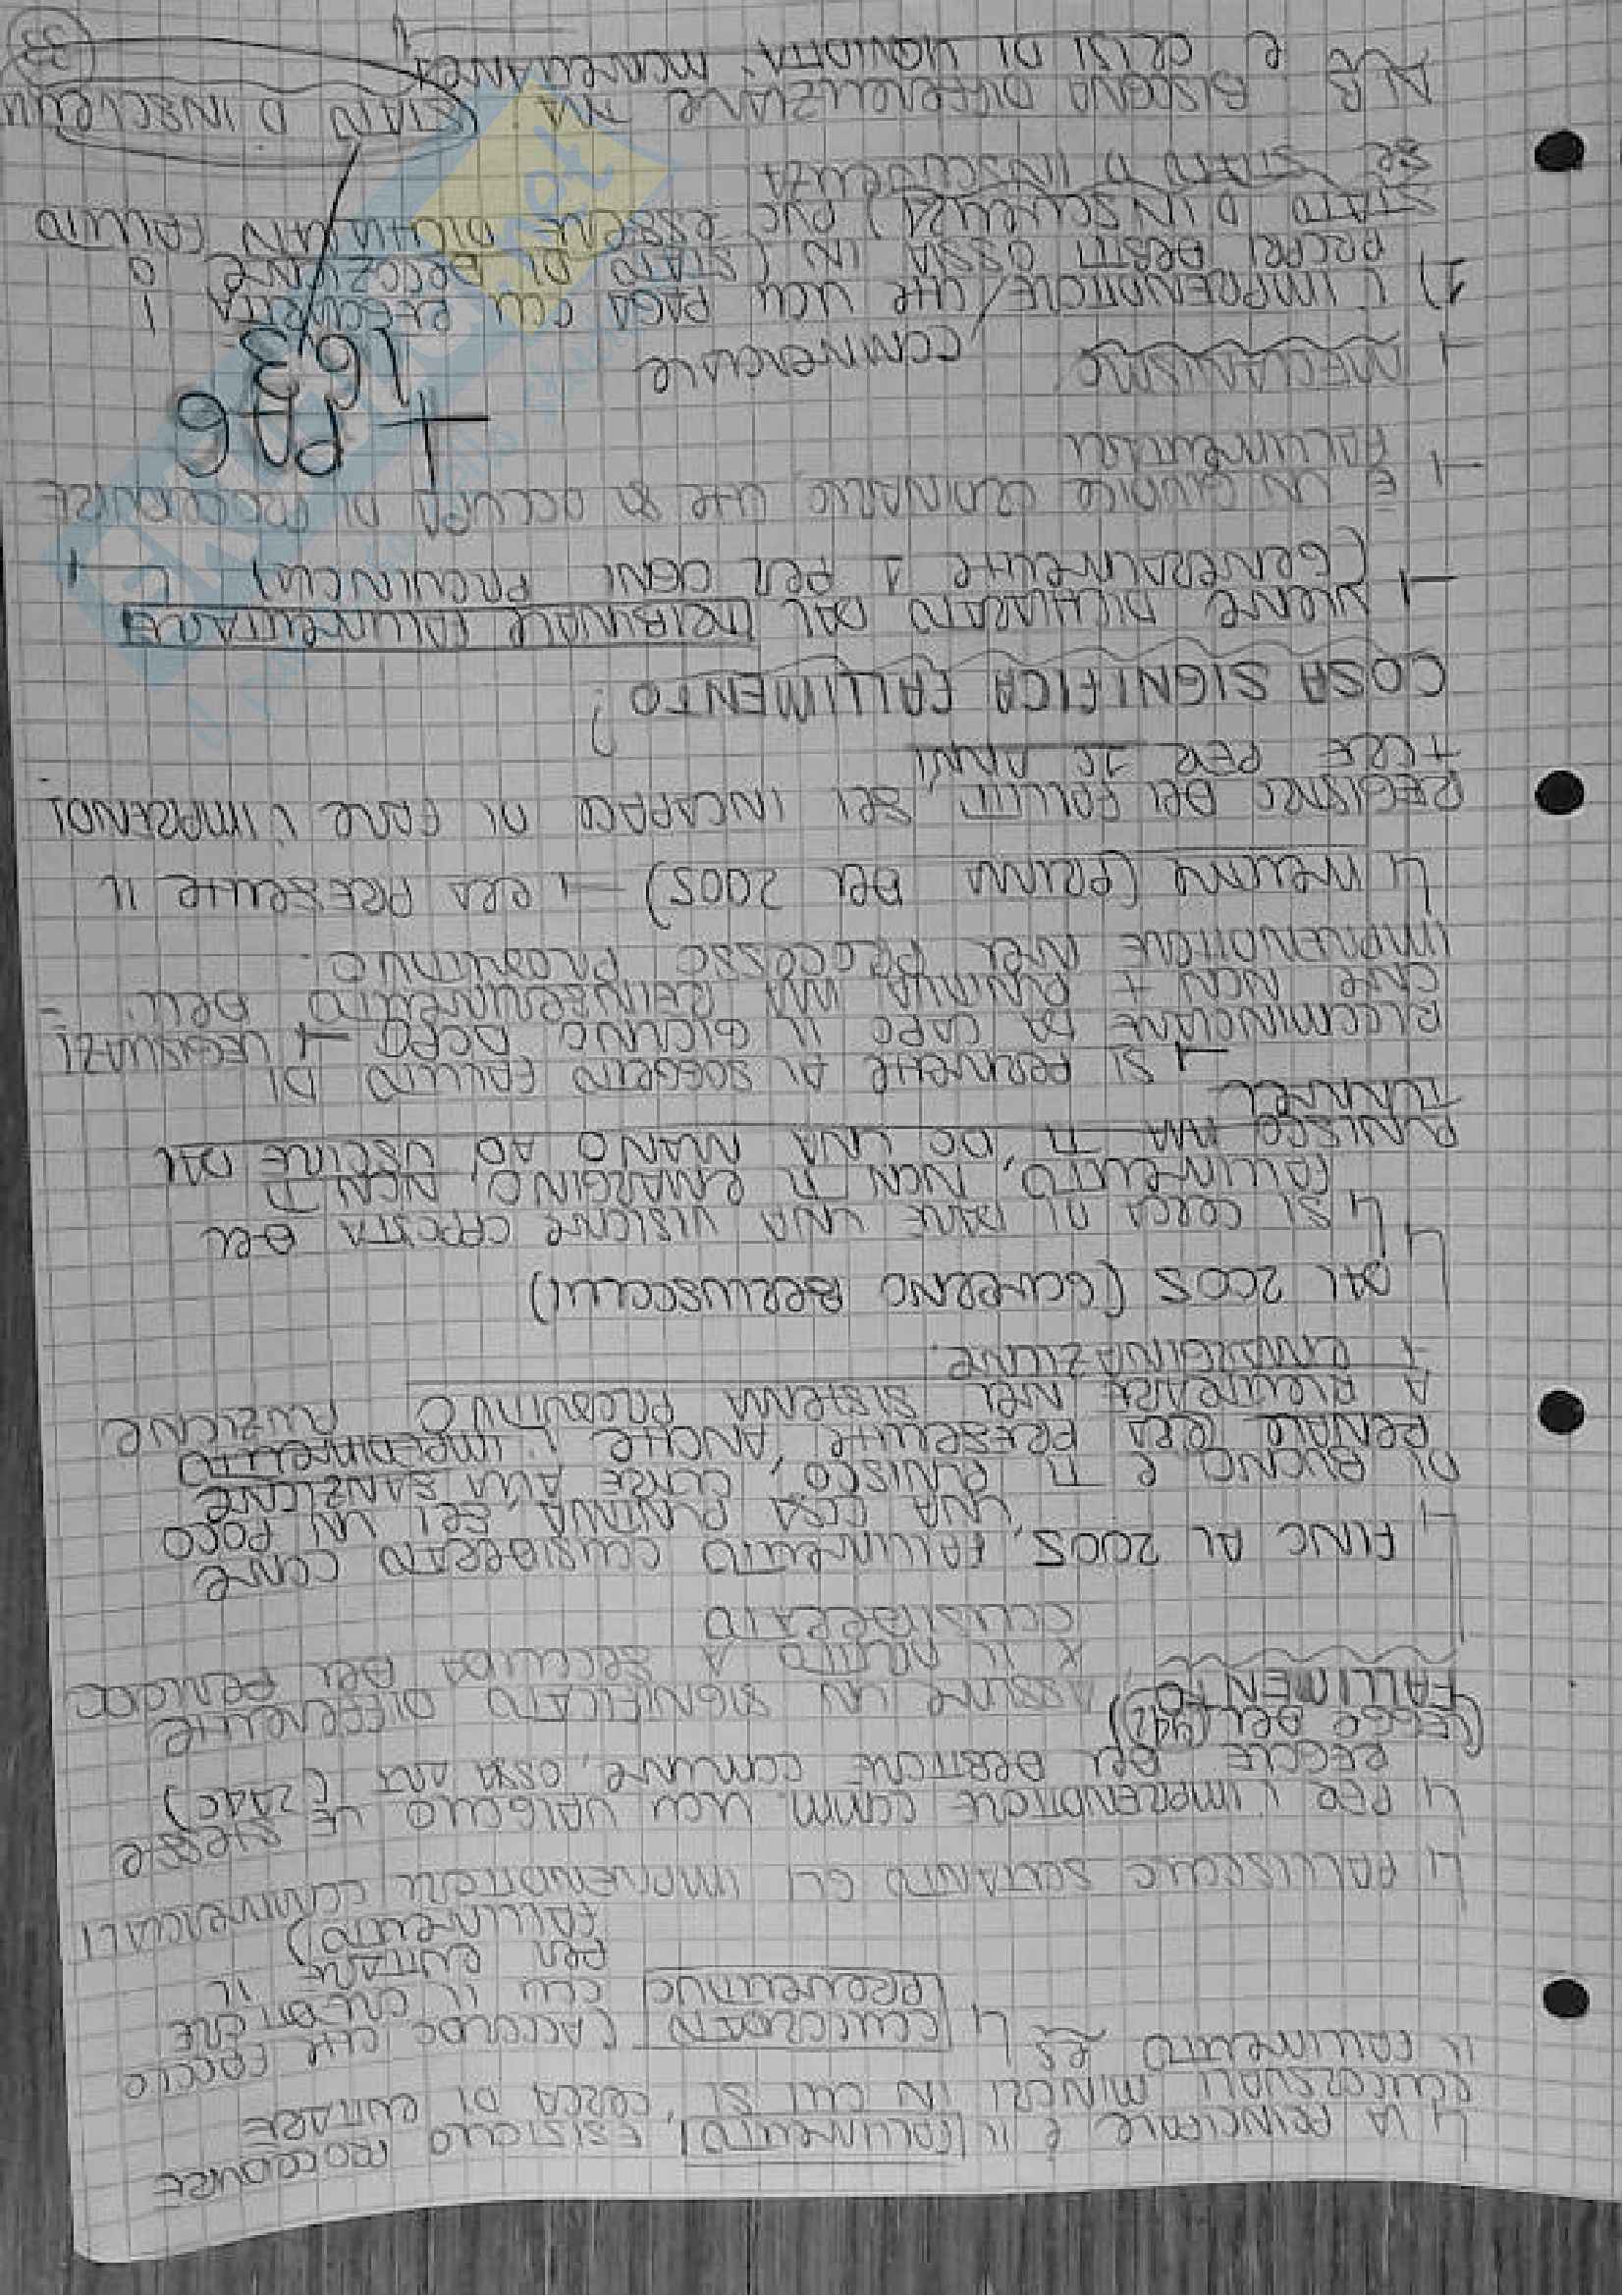 ↳ LA PRINCIPALE È IL FALLIMENTO, ESISTONO PROCEDURE
CONCORSUALI MINORI IN CUI SI CERCA DI EVITARE
IL FALLIMENTO ES ↳ CONCORDATO (ACCORDO CHE FACCIO
PREVENTIVO CON IL CREDITORE
PER EVITARE IL
FALLIMENTO)
↳ FALLISCONO SOLTANTO GLI IMPRENDITORI COMMERCIALI
↳ PER L'IMPRENDITORE COMM. NON VALGONO LE STESSE
REGOLE DEL DEBITORE COMUNE, OSSIA ART (2740)
(LEGGE DEL 1942)
FALLIMENTO, ASSUME UN SIGNIFICATO DIFFERENTE
X IL DIRITTO A SECONDA DEL PERIODO
CONSIDERATO
↳ FINO AL 2005, FALLIMENTO CONSIDERATO COME
UNA COSA PUNITIVA, SEI UN POCO
DI BUONO E TI PUNISCO, OLTRE ALLA SANZIONE
PENALE ERA PRESENTE ANCHE L'IMPEDIMENTO
A RIENTRARE NEL SISTEMA PRODUTTIVO PUNIZIONE
+ EMARGINAZIONE.
↳ DAL 2005 (GOVERNO BERLUSCONI)
↳ SI CERCA DI DARE UNA VISIONE OPPOSTA DEL
FALLIMENTO, NON TI EMARGINO, NON TI
PUNISCO MA TI DO UNA MANO AD USCIRE DAL
TUNNEL
→ SI PERMETTE AL SOGGETTO FALLITO DI
RICOMINCIARE DA CAPO IL GIORNO DOPO → LEGISLAZI-
ONE NON + PUNITIVA MA REINSERIMENTO DELL'
IMPRENDITORE NEL PROCESSO PRODUTTIVO.
↳ (PRIMA DEL 2005) → ERA PRESENTE IL
REGISTRO DEI FALLITI, SEI INCAPACE DI FARE L'IMPRENDI
TORE PER 5 ANNI
COSA SIGNIFICA FALLIMENTO?
→ VIENE DICHIARATO DAL TRIBUNALE FALLIMENTARE
(GENERALMENTE 1 PER OGNI PROVINCIA)
→ È UN GIUDICE ORDINARIO CHE SI OCCUPA DI PROCEDURE
FALLIMENTARI
+ PAG
163
→ MECCANISMO
COMMERCIALE
1) L'IMPRENDITORE CHE NON PAGA CON REGOLARITÀ I
PROPRI DEBITI OSSIA IN (STATO DI DECOZIONE O
STATO D'INSOLVENZA) PUÒ ESSERE DICHIARATO FALLITO
STATO D'INSOLVENZA
N.B BISOGNA DIFFERENZIARE TRA: STATO D'INSOLVENZA
E CRISI DI LIQUIDITÀ, MOMENTANEA
33
SKUOLA.net